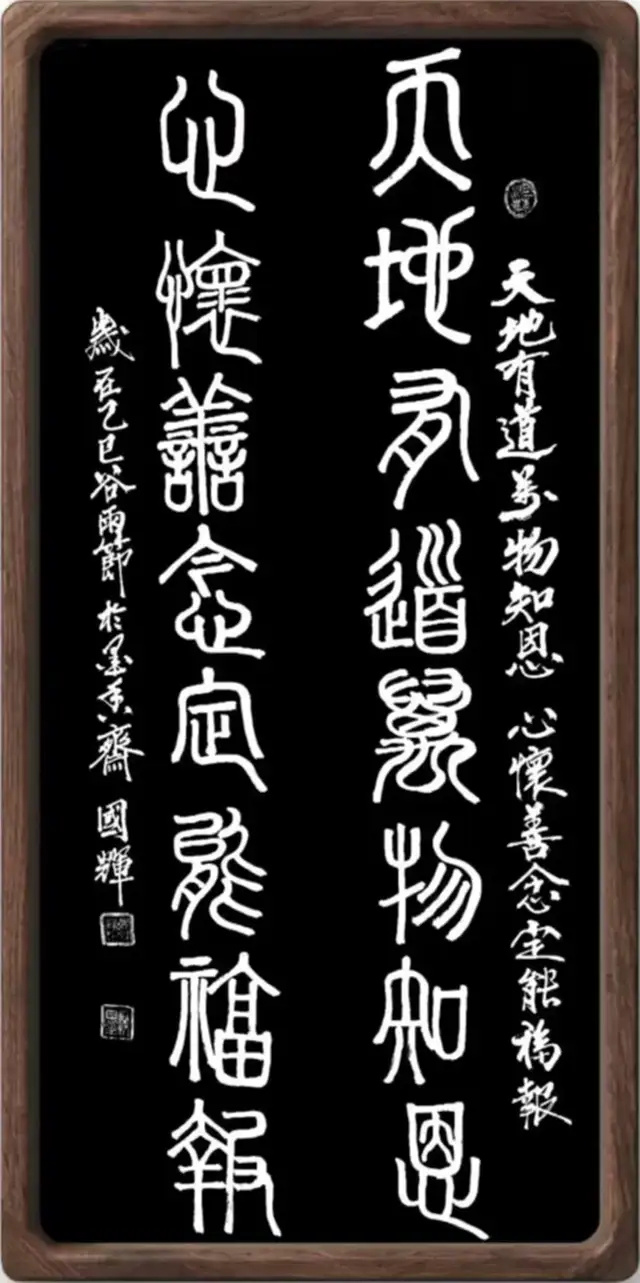 天地有道萬物知恩 心懷善念定能福報
天地有道萬物知恩
心懷善念定能福報
歲在乙巳谷雨節於墨香齋 國輝